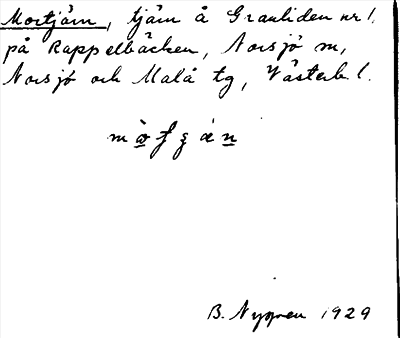 Mortjärn, tjärn å Granliden nr 1.
på Rappelbäcken, Norsjö sn,
Norsjö och Malå tg, Västerb. l.
B. Nygren 1929